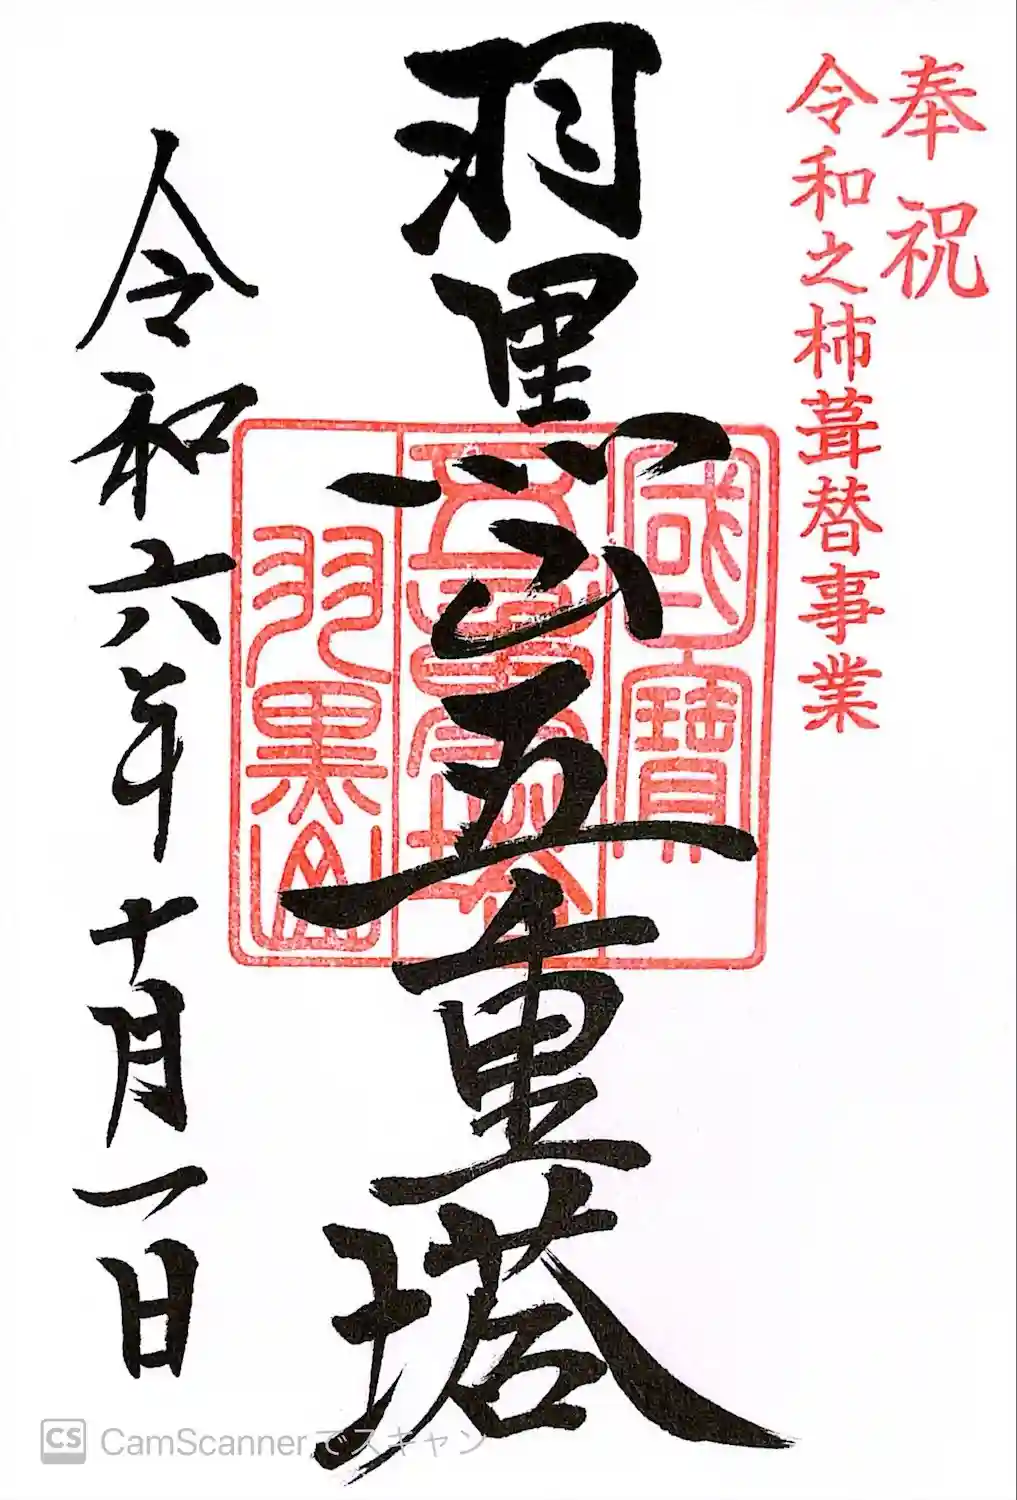 奉祝
令和之杮葺替事業
羽黒山五重塔
國寶
五重塔
羽黒山
令和六年十月一日
CS CamScannerでスキャン